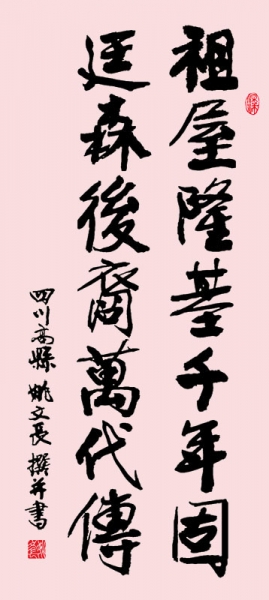 祖屋隆基千年固
廷森後裔萬代傳
四川高縣 姚文長 撰并書